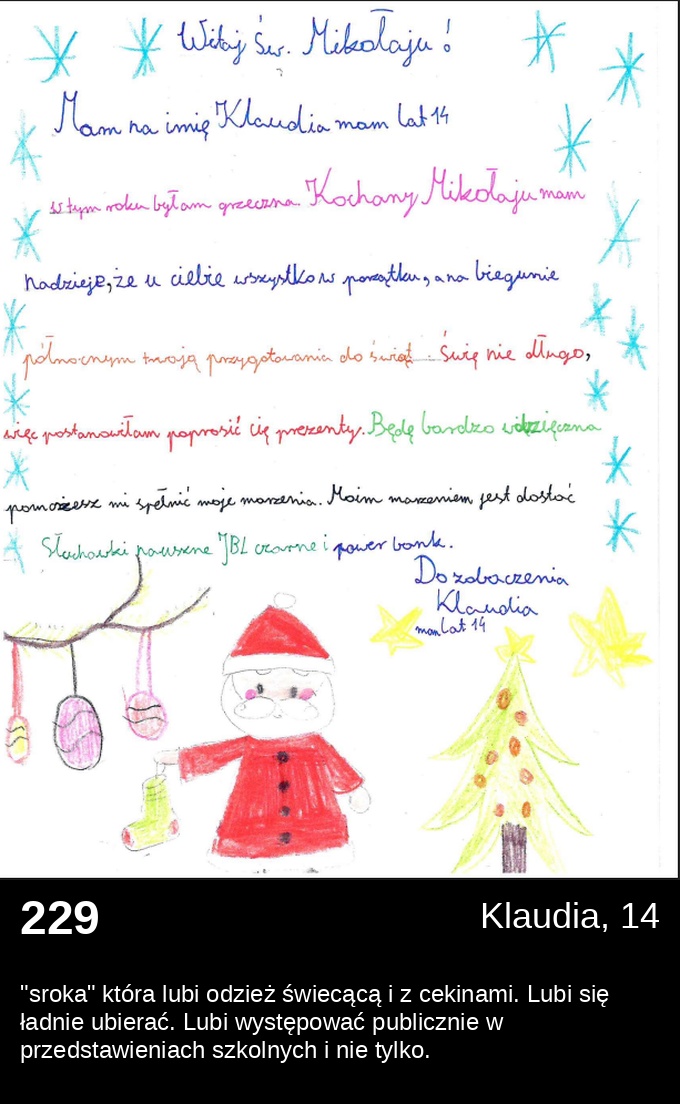 Witaj Św. Mikołaju!
Mam na imię Klaudia mam lat 14
w tym roku byłam grzeczna. Kochany Mikołaju mam
nadzieję, że u ciebie wszystko w porządku, a na biegunie
północnym trwają przygotowania do świąt. Święt nie długo,
więc postanowiłam poprosić cię prezenty. Będę bardzo wdzięczna
pomożesz mi spełnić moje marzenia. Moim marzeniem jest dostać
Słuchawki nauszne JBL czarne i power bank.
Do zobaczenia
Klaudia
mam lat 14
229
Klaudia, 14
"sroka" która lubi odzież świecącą i z cekinami. Lubi się
ładnie ubierać. Lubi występować publicznie w
przedstawieniach szkolnych i nie tylko.